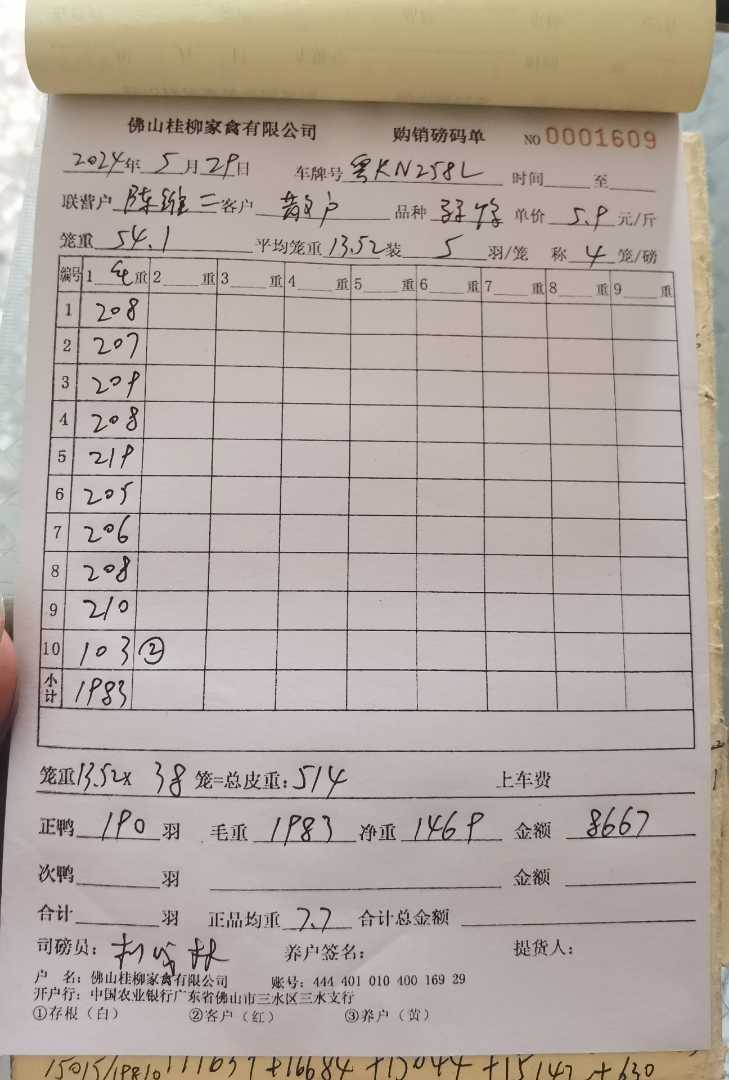 佛山桂柳家禽有限公司 购销磅码单 NO 0001609
2024年 5月 29日 车牌号 粤KN258L 时间 至
联营户 陈维二 客户 散户 品种 单价 5.9 元/斤
笼重 54.1 平均笼重 13.52 装 5 羽/笼 称 4 笼/磅
编号 1 毛重 2 重 3 重 4 重 5 重 6 重 7 重 8 重 9 重
1 208
2 207
3 209
4 208
5 219
6 205
7 206
8 208
9 210
10 103 ②
小计 1983
笼重 13.52× 38 笼=总皮重: 514 上车费
正鸭 190 羽 毛重 1983 净重 1469 金额 8667
次鸭 羽 金额
合计 羽 正品均重 7.7 合计总金额
司磅员: 养户签名: 提货人:
户 名: 佛山桂柳家禽有限公司 账号: 444 401 010 400 169 29
开户行: 中国农业银行广东省佛山市三水区三水支行
①存根（白） ②客户（红） ③养户（黄）
+16684 +15044 +15142 +630